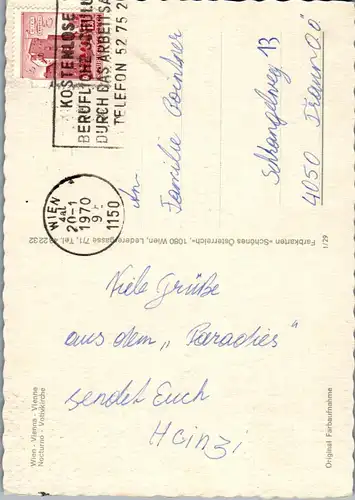 KOSTENLOSE
DURCH DAS ARBEITSA
TELEFON 52 75 2
WIEN
20-1
1970
1150
An
Familie
4050 Traun
Farbkarten »Schönes Österreich«, 1080 Wien, Lederergasse 7/1, Tel. 42 22 32
1/29
Viele Grüße
aus dem „Paradies"
sendet Euch
Heinzi
Wien - Vienna - Vienne
Nocturno - Votivkirche
Original Farbaufnahme